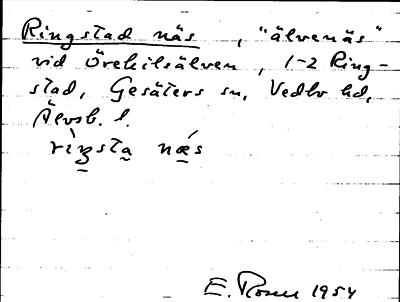 Ringstad näs, "älvenäs"
vid Örekilsälven, 1-2 Ring-
stad, Gesäters sn, Vedbo hd,
Älvsb. l.
rìŋsta næ´s
E. Rosell 1954